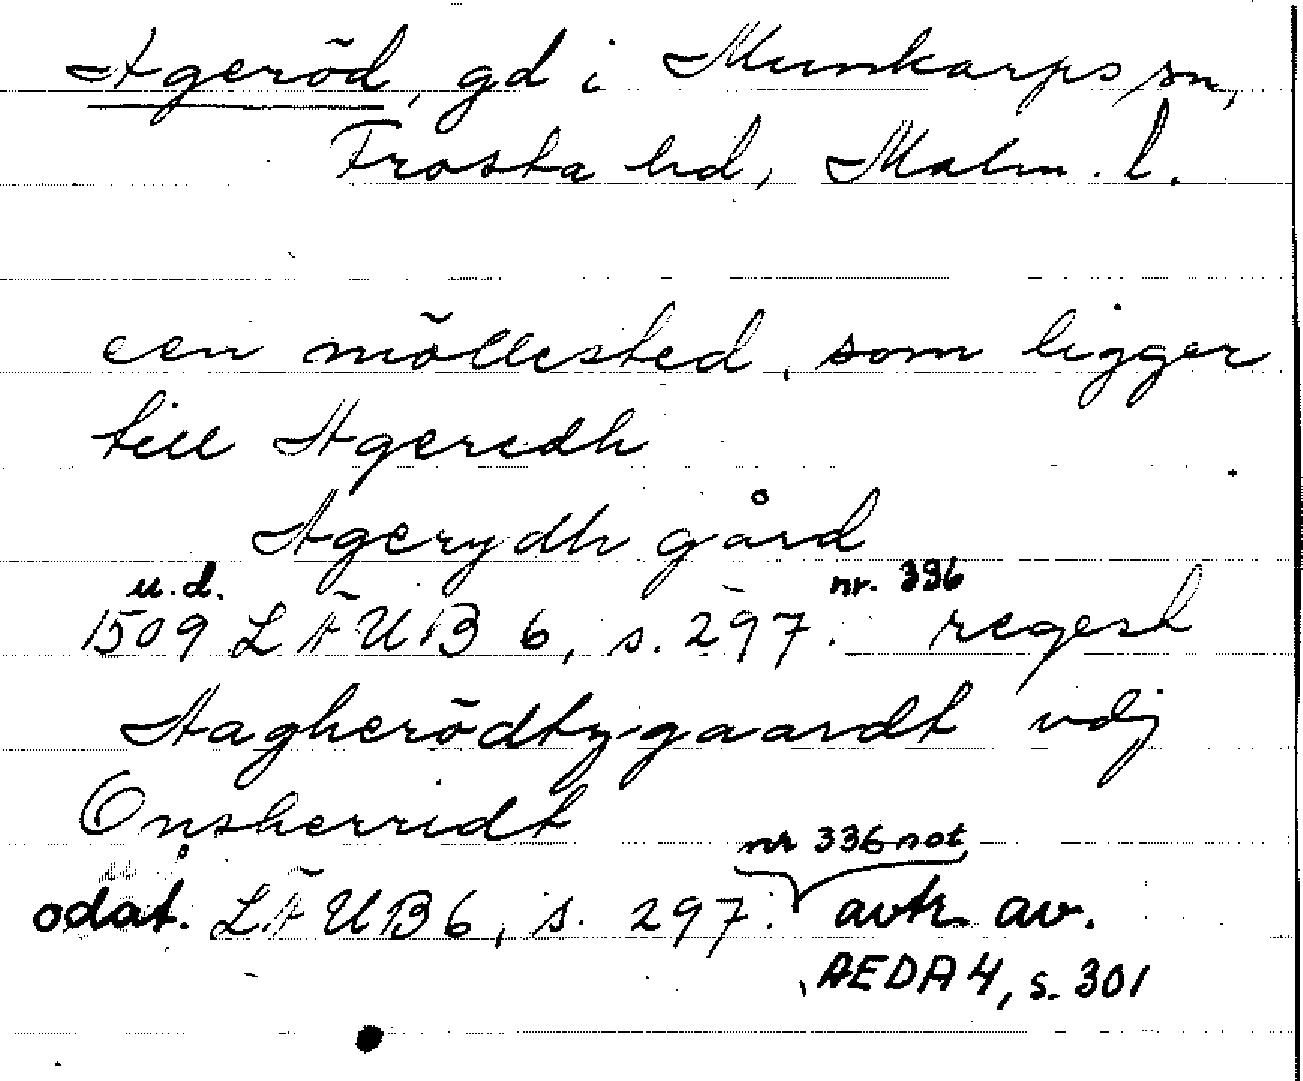 Ageröd, gd i Munkarps sn,
Frosta hd, Malm. l.
een möllested, som ligger
till Ageredh
Agerydh gård
u.d. nr. 336
1509 LÄUB 6, s. 297. regest
Aagherödtzgaardt vdj
Onsherridt
nr 336 not
odat. LÄUB 6, s. 297. avtr. av.
AEDA 4, s. 301